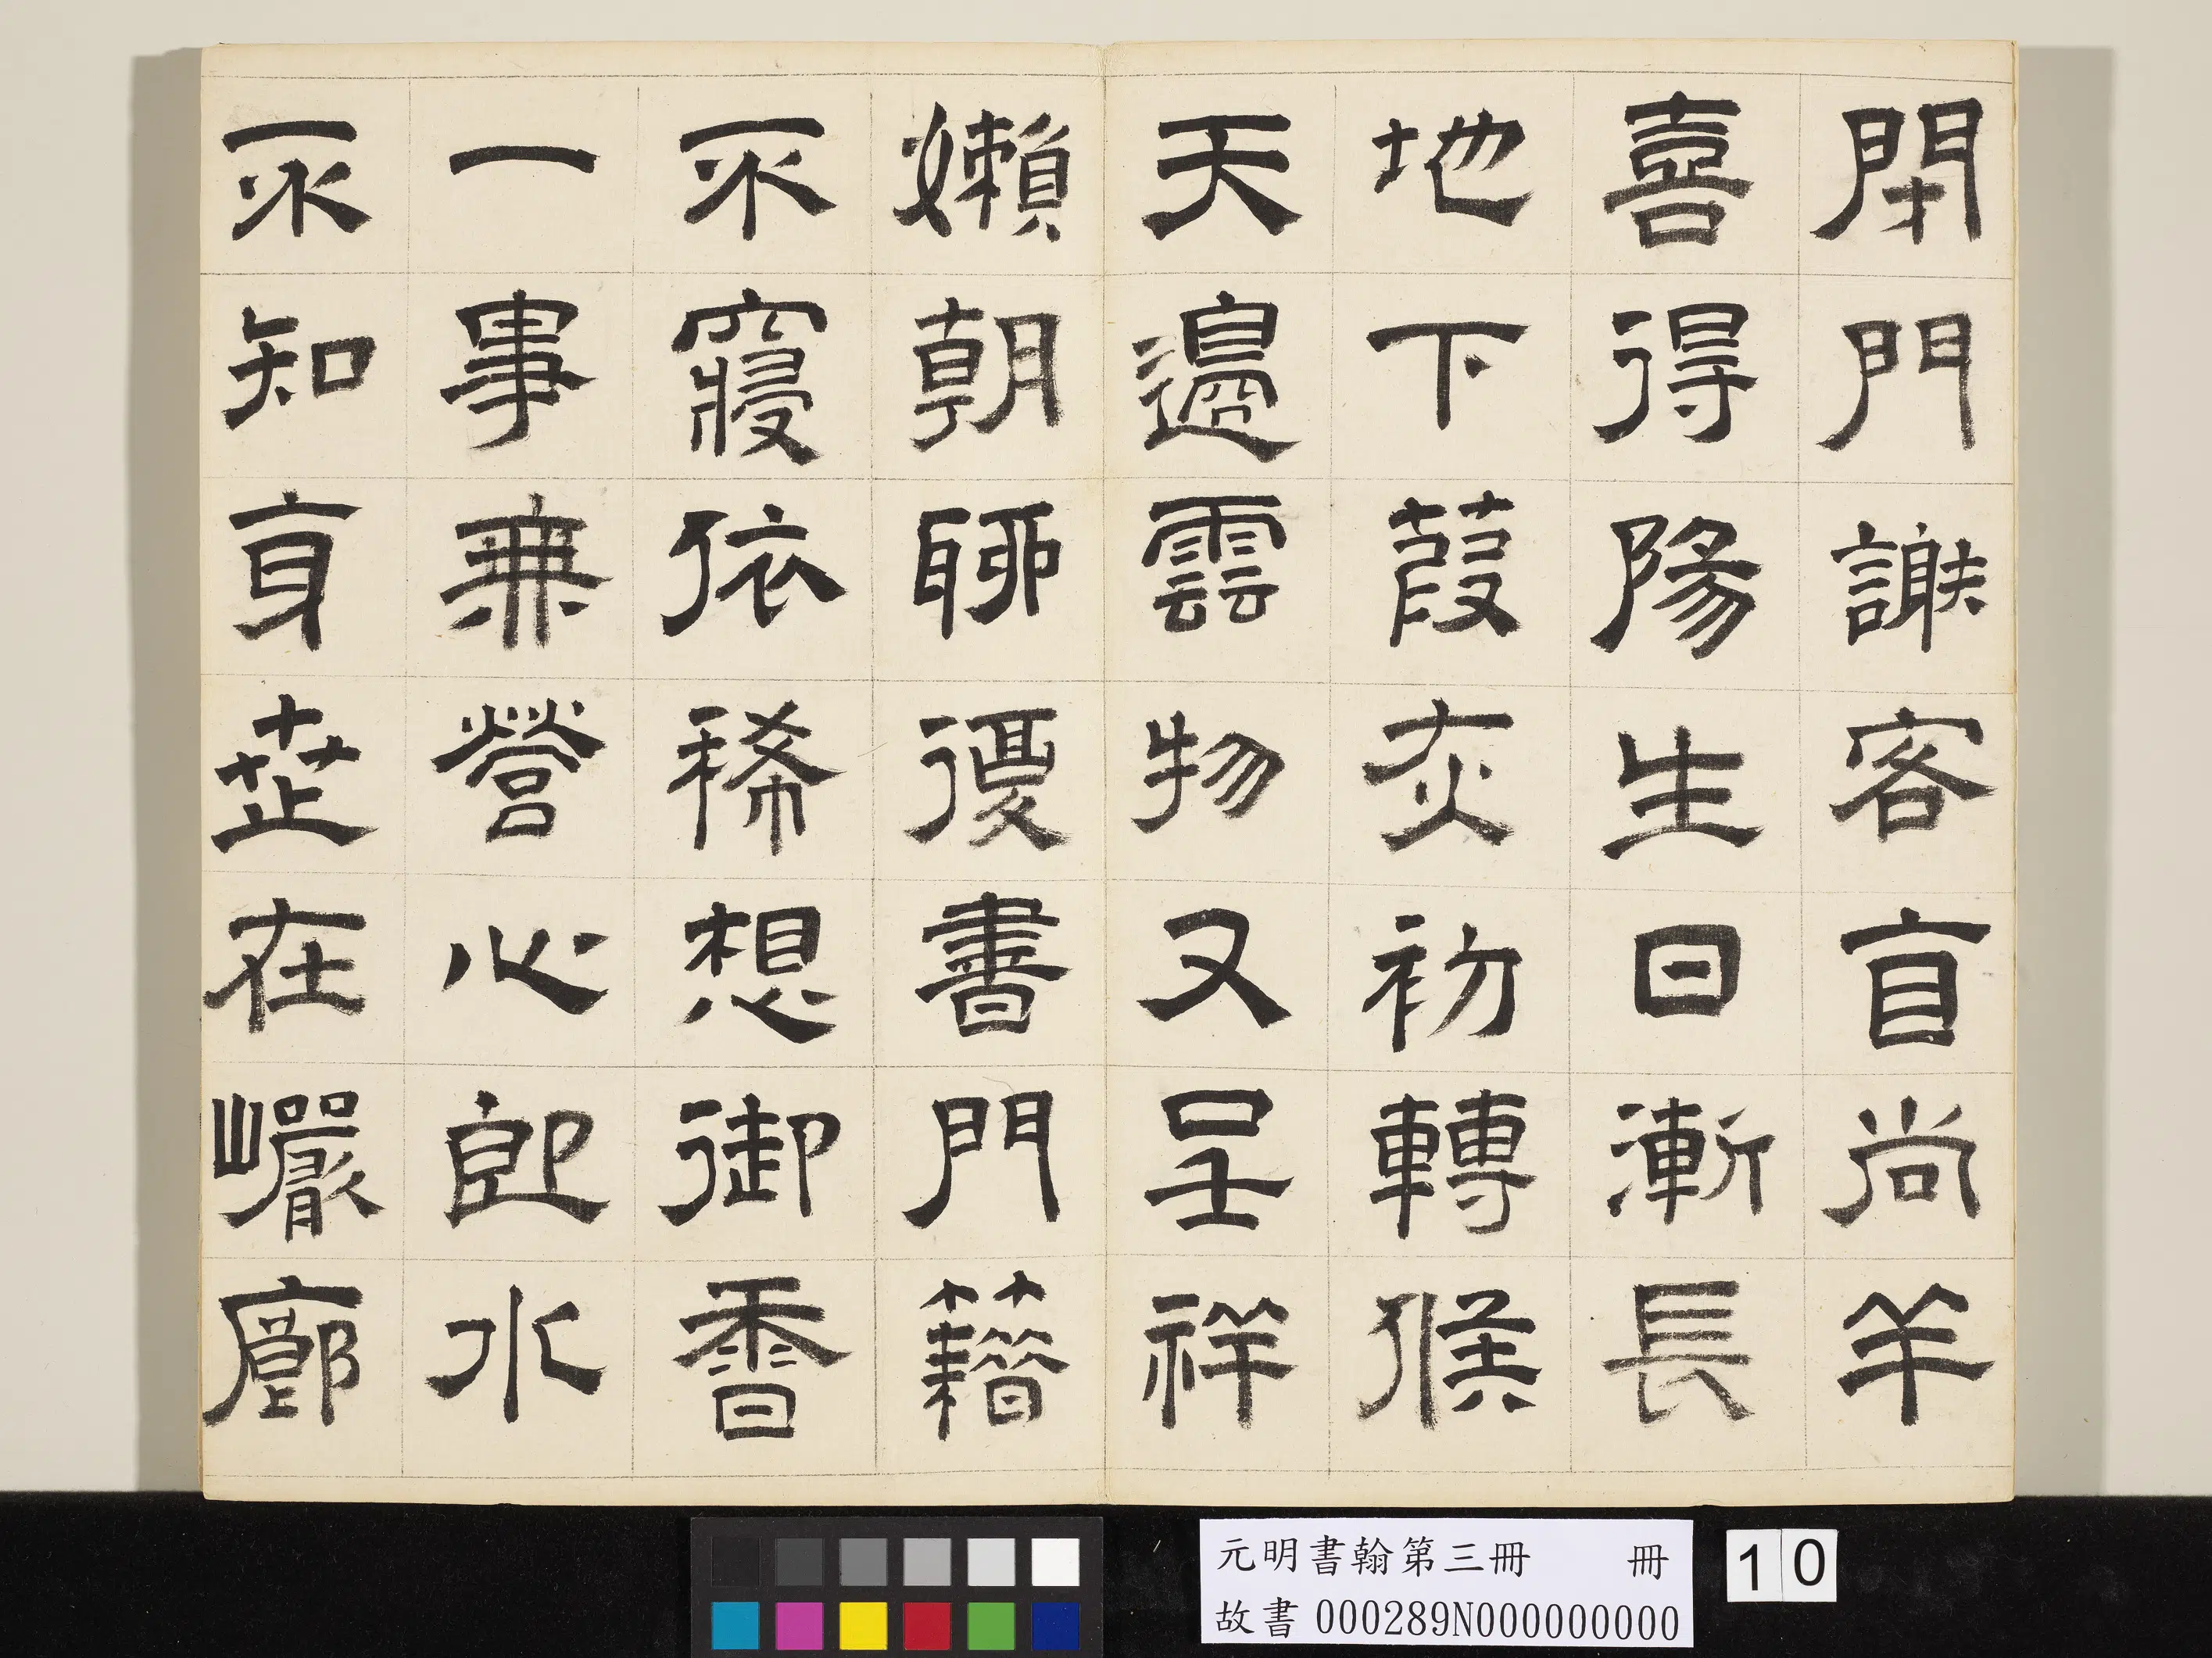 閉門謝客盲尚羊
喜得陽生日漸長
地下葭灰初轉候
天邊雲物又呈祥
嬾朝聊復書門籍
不寢依稀想御香
一事無營心即水
不知身世在巗廊
元明書翰第三冊 冊
故書 000289N000000000
10